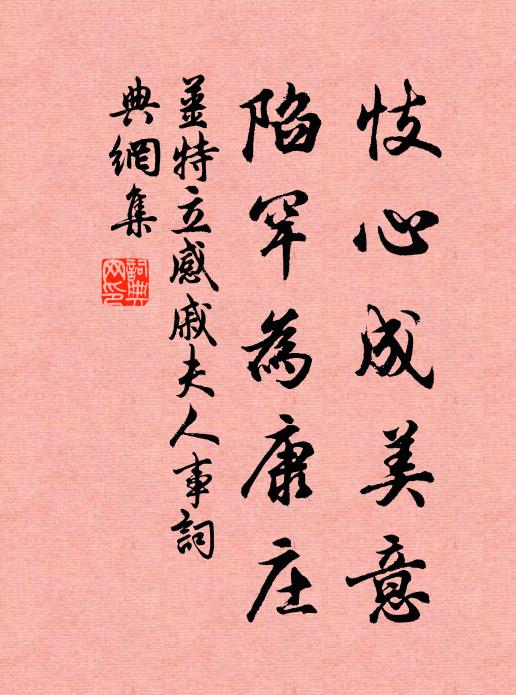 忮心成美意
陷罕為康庄
姜特立感戚夫人事詞
典網集
詞典网印